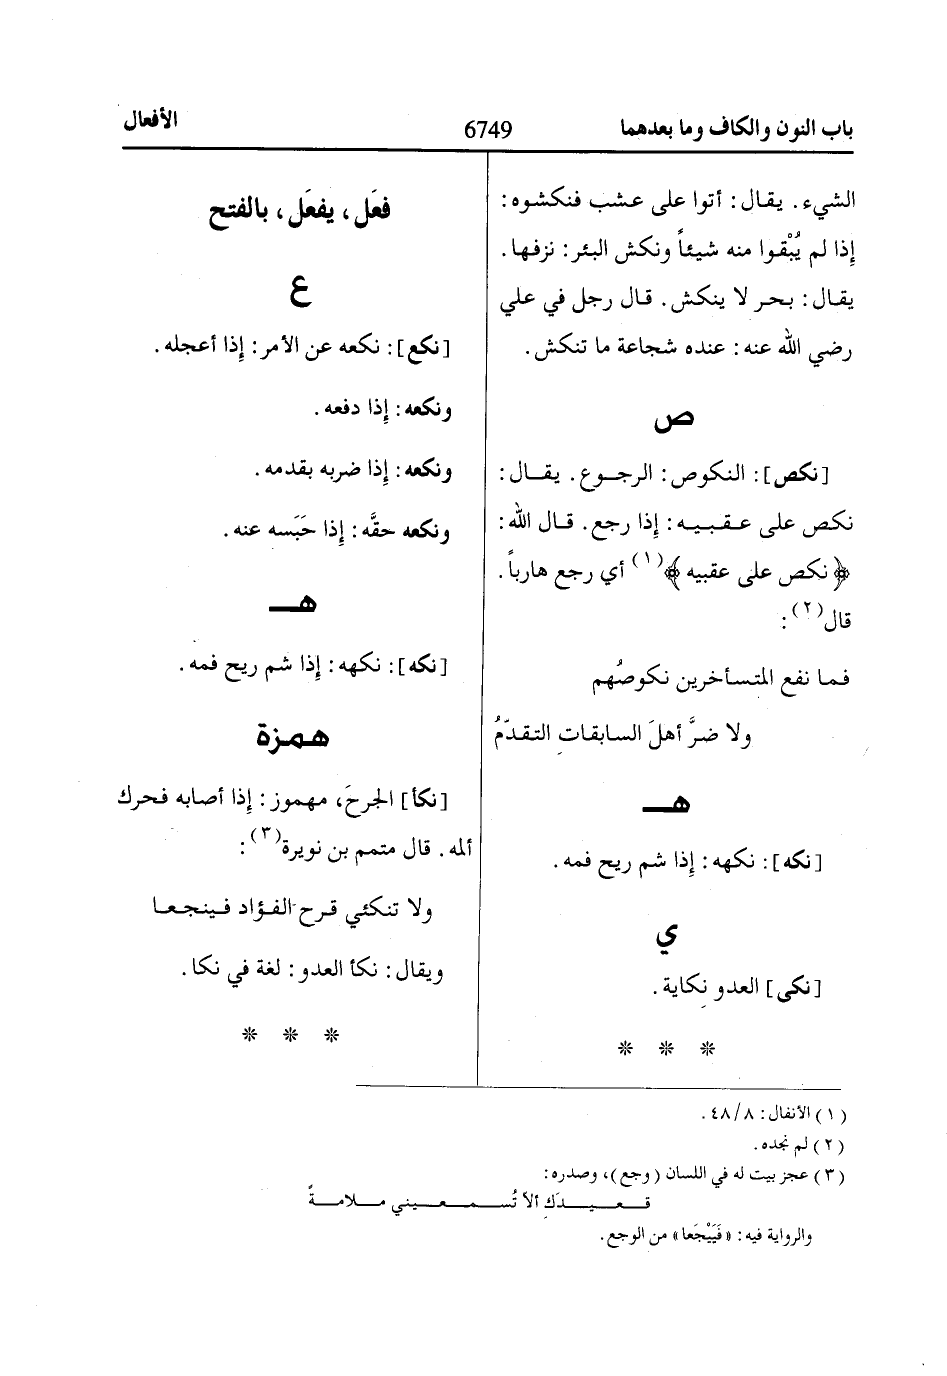 باب النون والكاف وما بعدهما
6749
الأفعال
الشيء. يقال: أتوا على عشب فنكشوه:
إذا لم يُبْقوا منه شيئاً ونكش البئر: نزفها.
يقال: بحر لا ينكش. قال رجل في علي
رضي الله عنه: عنده شجاعة ما تنكش.
ص
[نكص]: النكوص: الرجوع. يقال:
نكص على عقبيه: إذا رجع. قال الله:
﴿نكص على عقبيه﴾(١) أي رجع هارباً.
قال(٢):
فما نفع المتسأخرين نكوصُهم
ولا ضرَّ أهلَ السابقات التقدّمُ
هـ
[نكه]: نكهه: إذا شم ريح فمه.
ي
[نكى] العدو نكاية.
* * *
فعَل، يفعَل، بالفتح
ع
[نكع]: نكعه عن الأمر: إذا أعجله.
ونكعه: إذا دفعه.
ونكعه: إذا ضربه بقدمه.
ونكعه حقَّه: إذا حَبَسه عنه.
هـ
[نكه]: نكهه: إذا شم ريح فمه.
همزة
[نكأ] الجرحَ، مهموز: إذا أصابه فحرك
ألمه. قال متمم بن نويرة(٣):
ولا تنكئي قرح الفؤاد فينجعا
ويقال: نكأ العدو: لغة في نكا.
* * *
(١) الأنفال: ٤٨/٨.
(٢) لم نجده.
(٣) عجز بيت له في اللسان (وجع)، وصدره:
قعيدَك ألا تُسمعيني ملامةً
والرواية فيه: «فَيَيْجَعا» من الوجع.